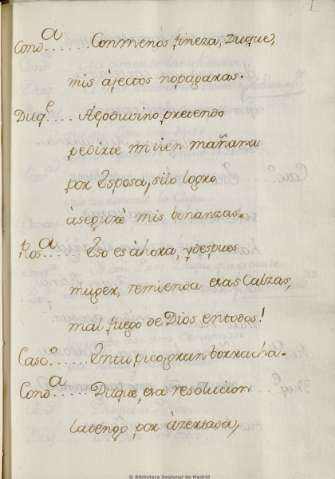 1
Cond.ᵃ ..... Con menos fineza, Duque,
mis afectos no pagaras.
Duq.ᵉ .... A Godivino pretendo
pedirte mi vien mañana
por Esposa, si lo logro
asegurè mis benanzas.
Ros.ᵃ .... Eso es ahora, y despues
muger, remienda esas Calzas,
mal fuego de Dios en todos!
Casc.ᵒ ..... En tu pico gran borracha.
Cond.ᵃ ..... Duque, esa resolucion
la tengo por azertada,
© Biblioteca Regional de Madrid